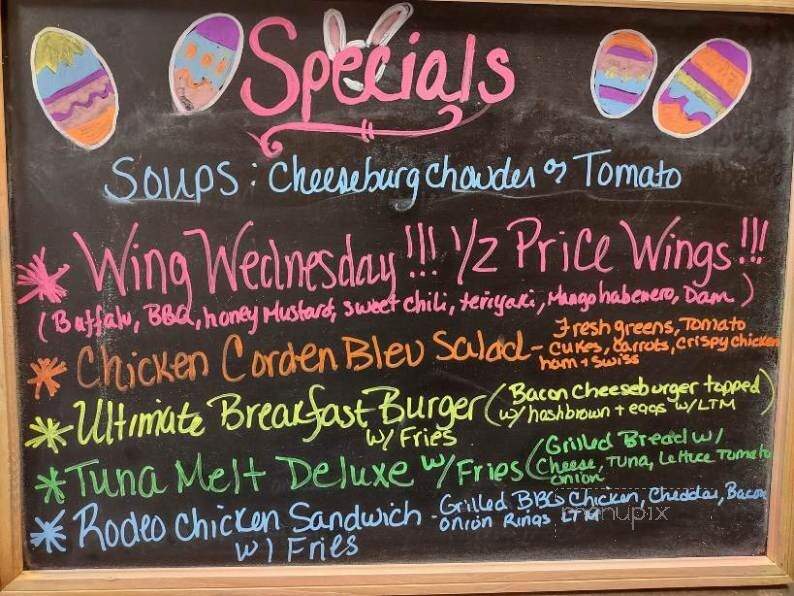 Specials
Soups: Cheeseburg Chowder or Tomato
* Wing Wednesday!!! 1/2 Price Wings!!!
(Buffalo, BBQ, honey Mustard, sweet chili, teriyaki, Mango habenero, Dam)
* Chicken Corden Bleu Salad - Fresh greens, Tomato
cukes, carrots, crispy chicken
ham + swiss
* Ultimate Breakfast Burger (Bacon Cheeseburger topped
w/ hashbrown + eggs w/ LTM)
w/ Fries
* Tuna Melt Deluxe w/ Fries (Grilled Bread w/
Cheese, Tuna, Lettuce Tomato
onion
* Rodeo Chicken Sandwich - Grilled BBQ Chicken, Cheddar, Bacon
onion Rings LTM
w/ Fries
menupix